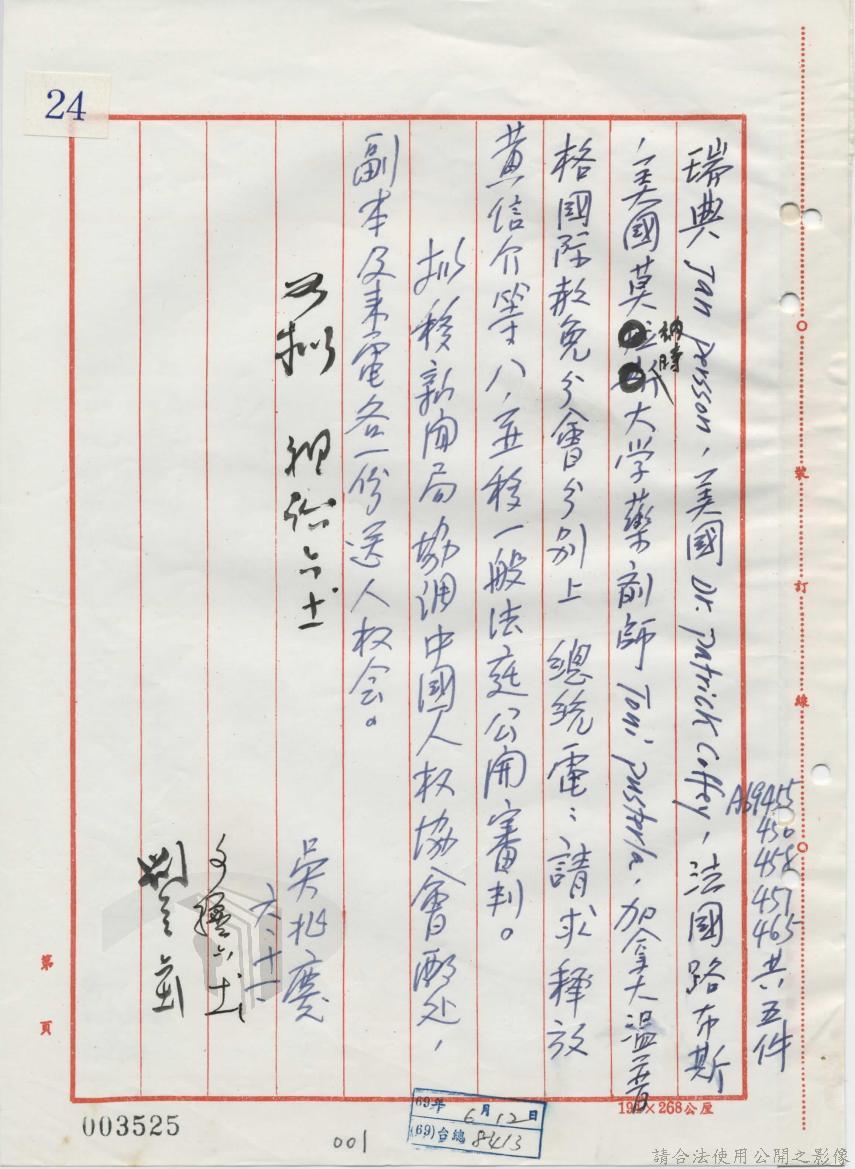 24
A69455
450
458
457
465共五件
瑞典 Jan Persson, 美國 Dr. Patrick Coffey, 法國路布斯
,美國莫納時大学藥劑師 Toni Pusterla, 加拿大温哥
格國際赦免分會分別上 總統電:請求釋放
黃信介等八,並移一般法庭公開審判。
拟移新聞局協調中國人权協會酌处,
副本及来電各一份送人权会。
如拟
吳兆慶
六、十二
裝
訂
線
第
頁
003525
001
69年6月12日
(69)台總8413
190×268公厘
請合法使用公開之影像